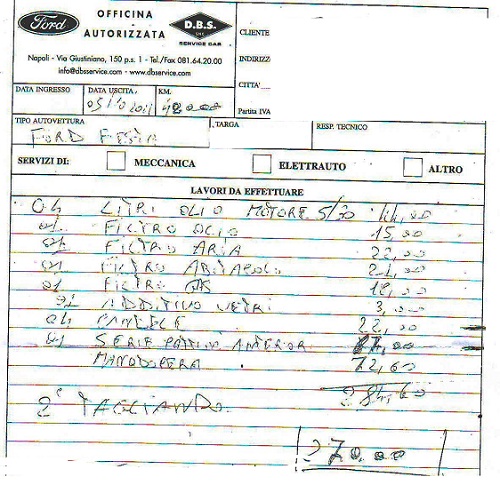 Ford
OFFICINA
AUTORIZZATA
D.B.S.
SERVICE CAR
Napoli - Via Giustiniano, 150 p.s. 1 - Tel./Fax 081.64.20.00
info@dbsservice.com - www.dbservice.com
CLIENTE
INDIRIZZ
CITTA'
Partita IVA
DATA INGRESSO DATA USCITA KM.
42000
TIPO AUTOVETTURA TARGA RESP. TECNICO
FORD FIESTA
SERVIZI DI: MECCANICA ELETTRAUTO ALTRO
LAVORI DA EFFETTUARE
04 LITRI OLIO MOTORE 5/30 44,00
01 FILTRO OLIO 15,00
01 FILTRO ARIA 22,00
01 FILTRO ABITACOLO
01 FILTRO GAS
01 ADDITIVO VETRI 3,00
04 CANDELE 22,00
01 SERIE PATTINI ANTERIORI
MANODOPERA 72,60
284,60
2° TAGLIANDO
270,00